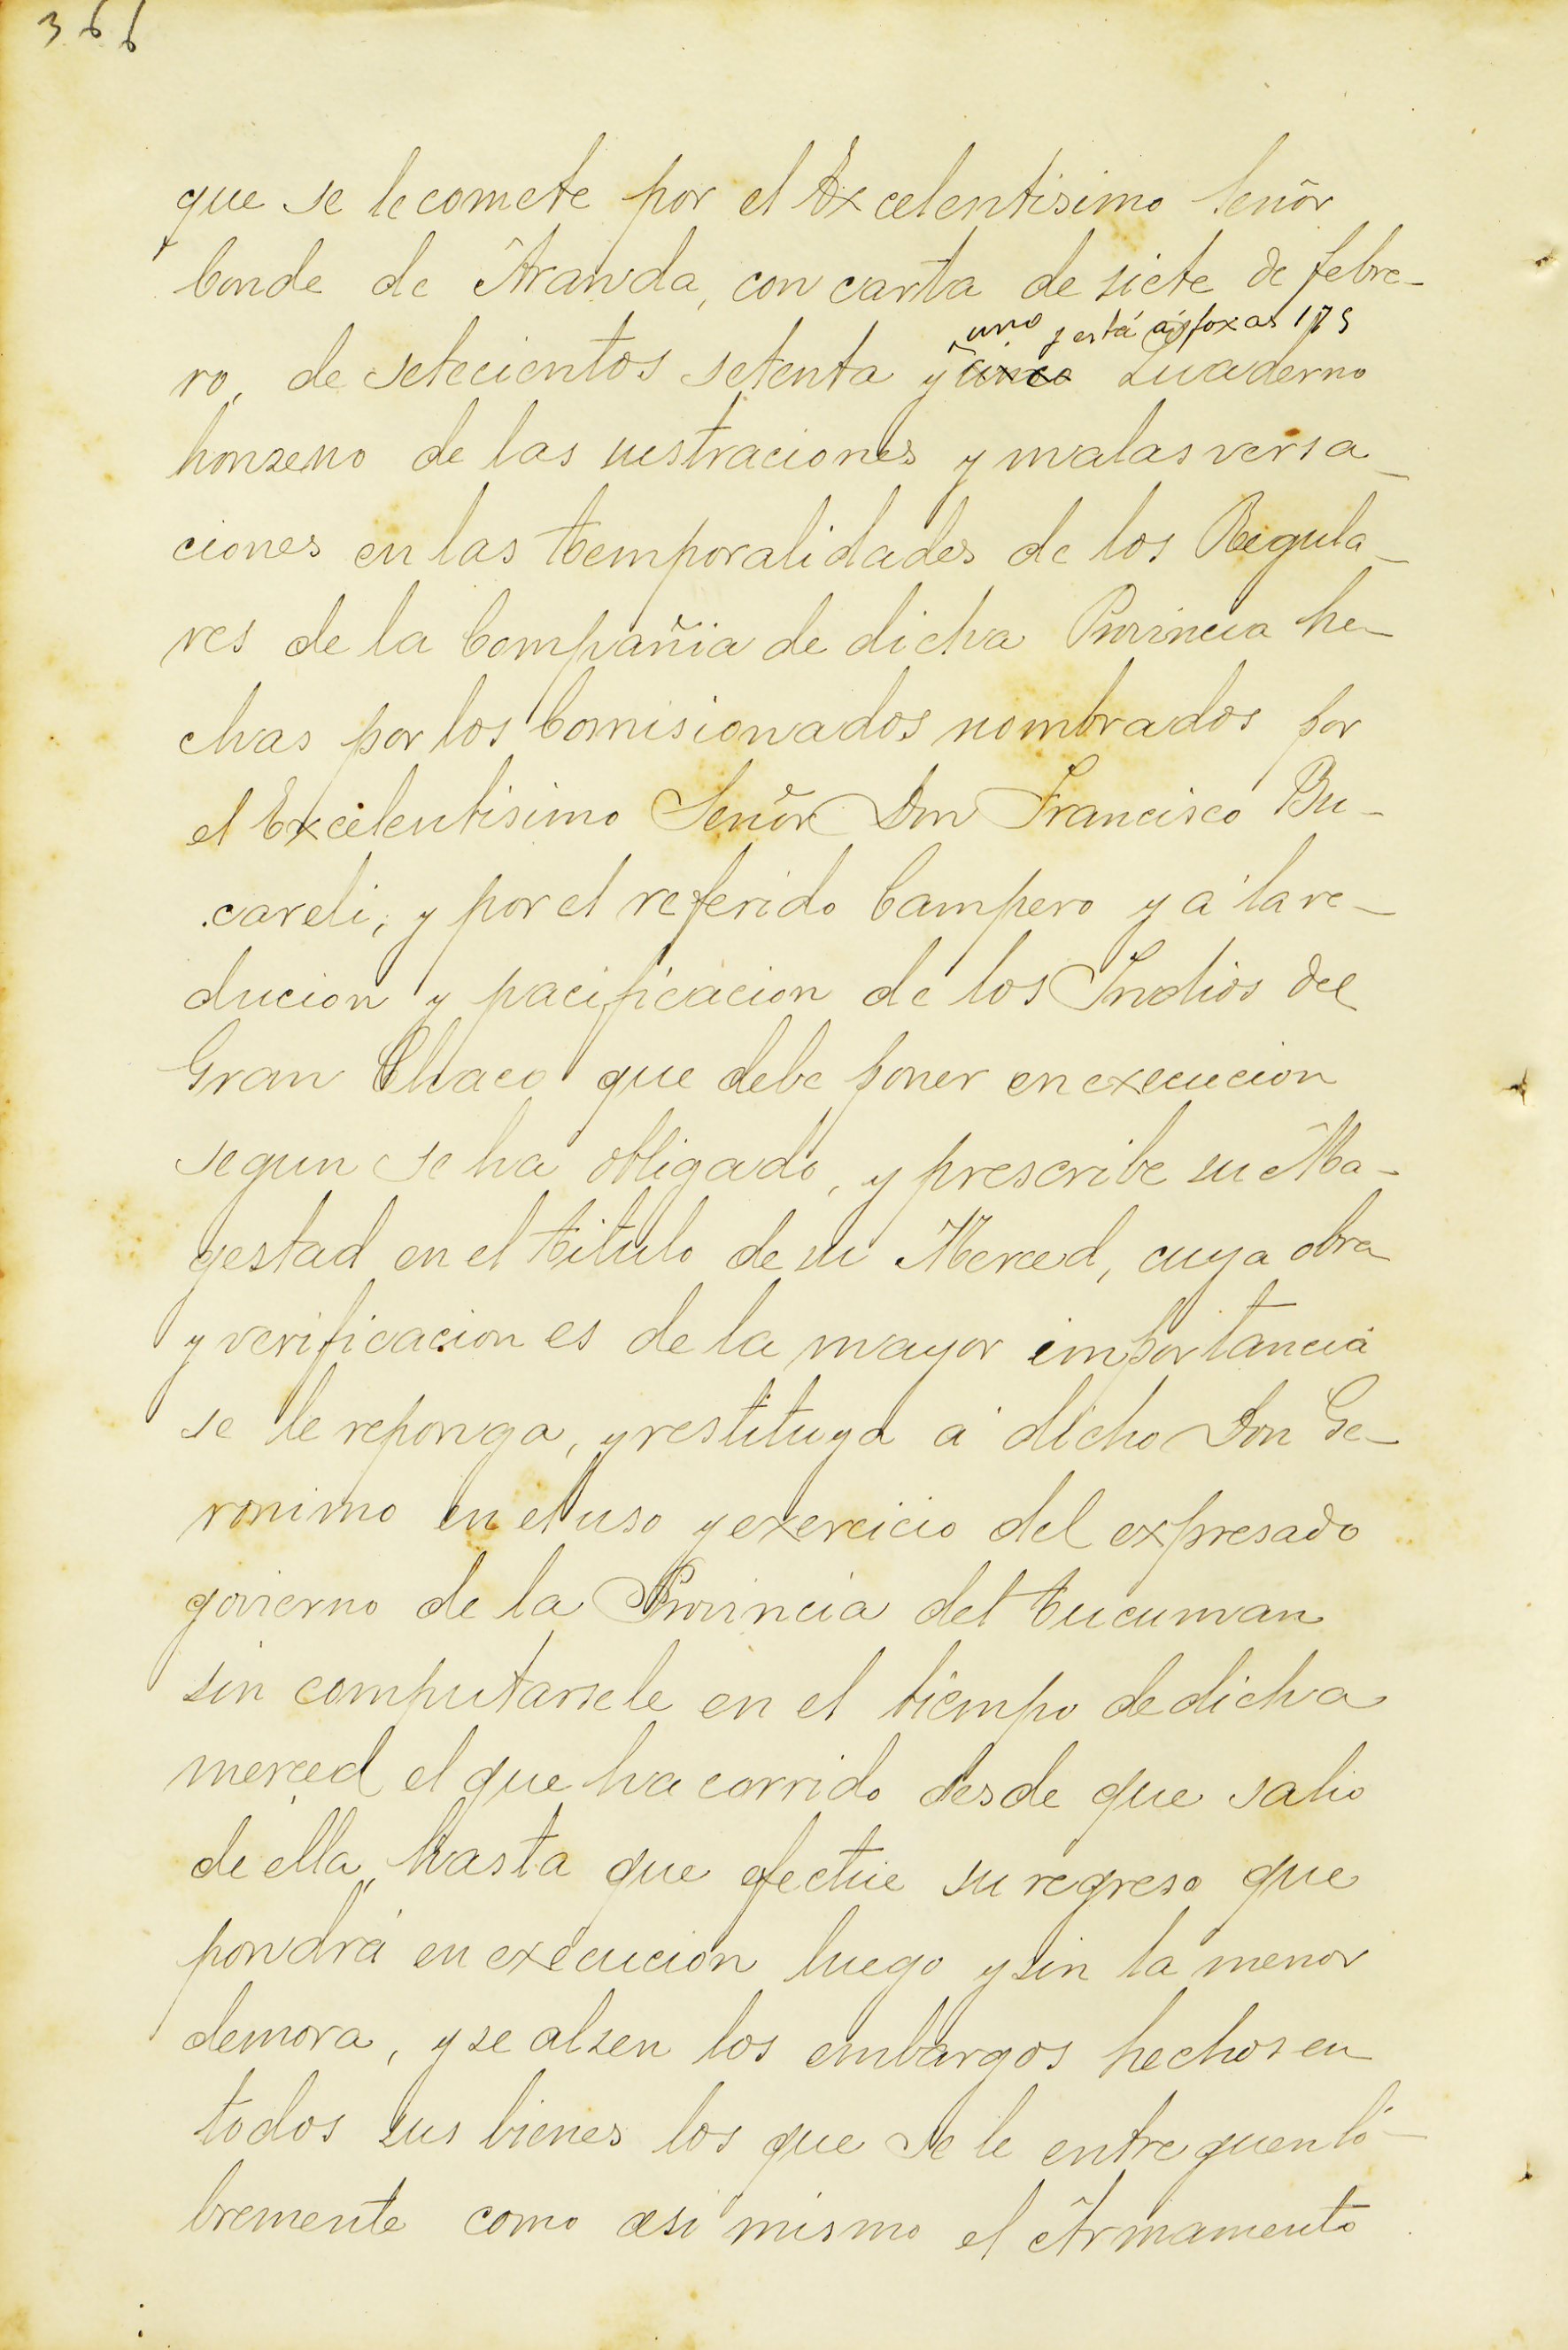 366
que se le comete por el Excelentisimo Señor
Conde de Aranda, con carta de siete de febre-
uno y está á foxas 175
ro, de setecientos setenta y cinco Quaderno
honzeno de las sustraciones y malas versa-
ciones en las temporalidades de los Regula-
res de la Compañia de dicha Provincia he-
chas por los Comisionados nombrados por
el Excelentisimo Señor Don Francisco Bu-
careli, y por el referido Campero y á la re-
ducion y pacificacion de los Indios del
Gran Chaco que debe poner en execucion
segun se ha obligado, y prescribe su Ma-
gestad en el titulo de su Merced, cuya obra
y verificacion es de la mayor importancia
se le reponga, y restituya á dicho Don Ge-
ronimo en el uso y exercicio del expresado
govierno de la Provincia del Tucuman
sin computarsele en el tiempo de dicha
merced el que ha corrido desde que salio
de ella, hasta que efectue su regreso que
pondrá en execucion luego y sin la menor
demora, y se alsen los embargos hechos en
todos sus bienes los que se le entreguen li-
bremente como asi mismo el Armamento